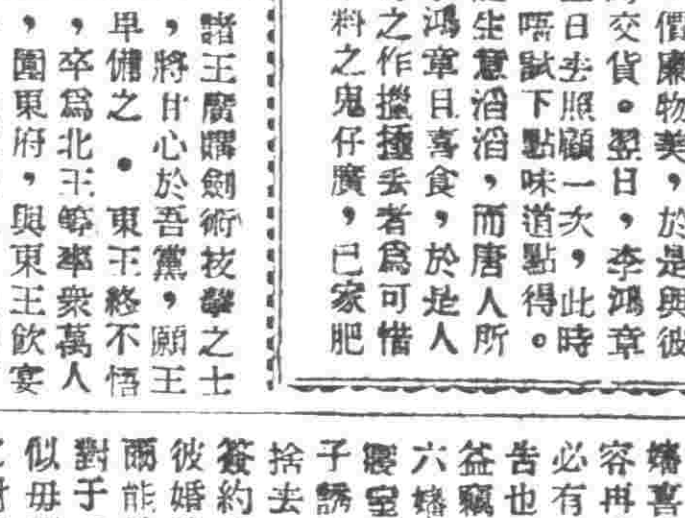 價廉物美，於是與彼
交貨。翌日，李鴻章
日去照顧一次，此時
唔試下點味道點得。
生意滔滔，而唐人所
鴻章日喜食，於是人
之作擸𢶍丟者為可惜
料之鬼仔廣，已家肥
諸王廣購劍術技擊之士
，將甘心於吾黨，願王
早備之．東王終不悟
，卒為北王等率衆萬人
，圍東府，與東王飲宴
嬸喜
容冉
必有
告也
益竊
六嬸
寢室
子誘
捨去
簽約
彼婚
爾能
對于
似毋